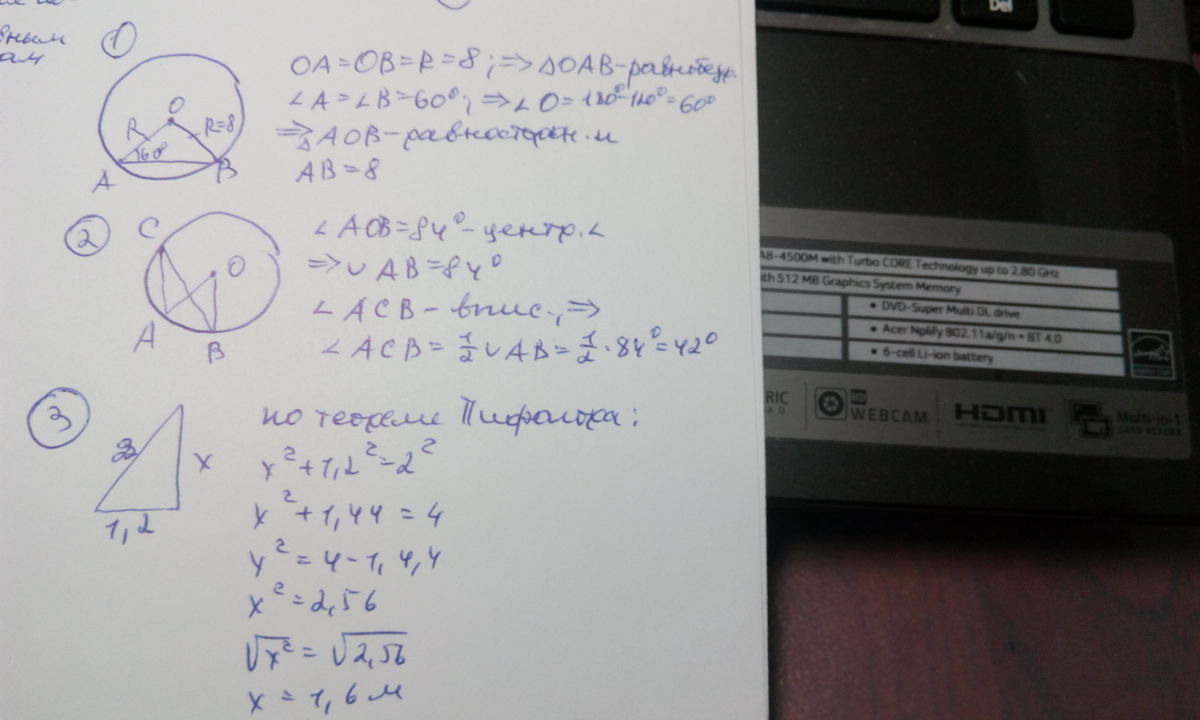 вным
ам
①
O
R
R=8
60°
A
B
OA=OB=R=8; ⇒ ΔOAB-равнобедр.
∠A=∠B=60°; ⇒ ∠O=180°-120°=60°
⇒ ΔAOB-равносторон.й
AB=8
②
C
O
A
B
∠AOB=84°-центр.∠
⇒ ∪AB=84°
∠ACB-впис., ⇒
∠ACB=1/2∪AB=1/2·84°=42°
③
2
x
1,2
по теореме Пифагора:
x²+1,2²=2²
x²+1,44=4
x²=4-1,4,4
x²=2,56
√x²=√2,56
x=1,6 м
Del
A8-4500M with Turbo CORE Technology up to 2.80 GHz
ith 512 MB Graphics System Memory
• DVD-Super Multi DL drive
• Acer Nplify 802.11a/g/n + BT 4.0
• 6-cell Li-ion battery
RIC
AD
HD
WEBCAM
HDMI
Multi-in-1
CARD READER